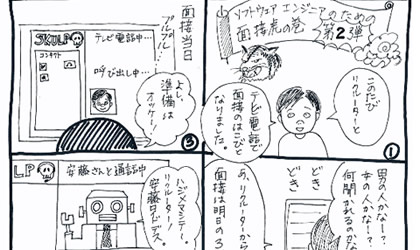 ソフトウェアエンジニアのための
面接虎の巻
第2弾
このたび
リクルーターと
テレビ電話で
面接のはこびと
なりました。
①
男の人かな!?
女の人かな!?
何聞かれるのかな
どき
どき
あ、リクルーターから
面接は明日の3
面接当日
プルプル…
SKULP
コンタクト
テレビ電話中…
呼び出し中…
よし、
準備は
オッケー!
③
LP
安藤さんと通話中
ハジメマシテ!
リクルーターノ
安藤ロイドデス。